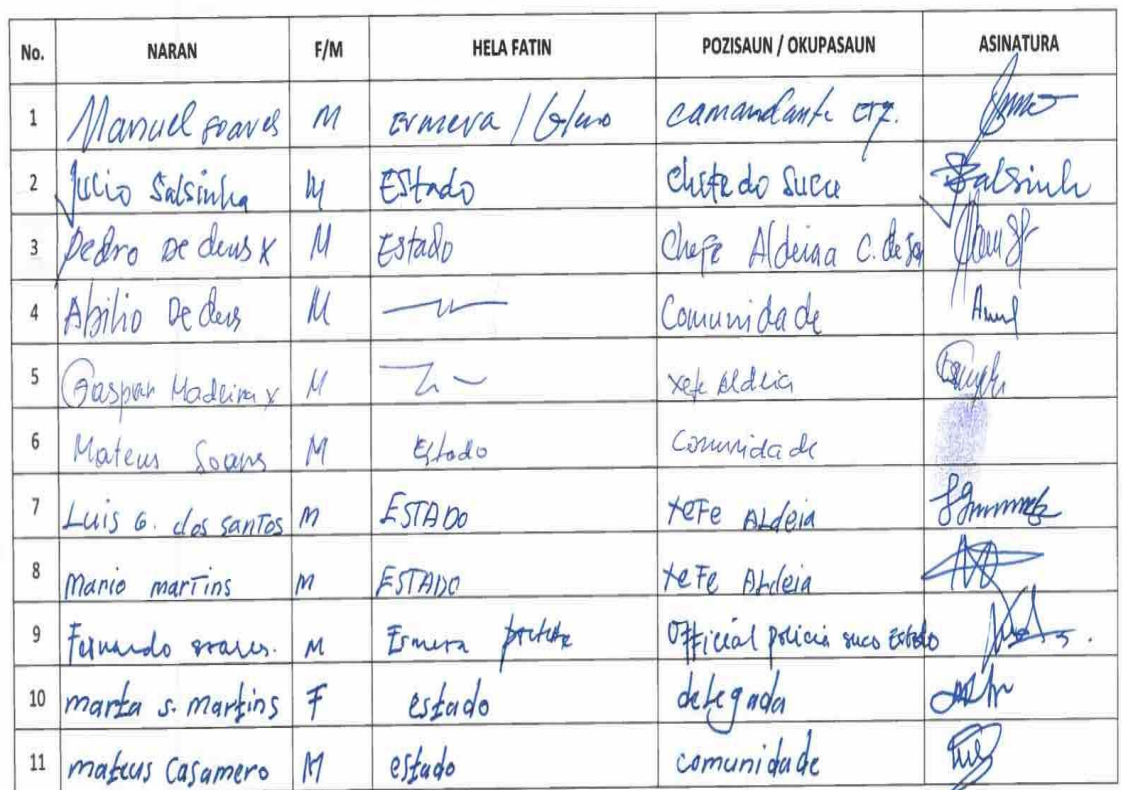 No. NARAN F/M HELA FATIN POZISAUN / OKUPASAUN ASINATURA
1 Manuel soares M Ermera / Gleno comandante
2 Julio Salsinha M Estado Chefe do Sucu Salsinh
3 Pedro De deus X M Estado Chefe Aldeiaa C. de
4 Abilio De deus M Comunidade
5 Gaspar Madeira x M xefe Aldeia
6 Mateus Soares M Estado Comunidade
7 Luis G. dos santos M ESTADO xeFe ALdeia
8 Mario martins M ESTADO xeFe ALdeia
9 Fernando soares. M Ermera Official policia suco Estado
10 marta s. martins F estado delegada
11 mateus Casamero M estado comunidade